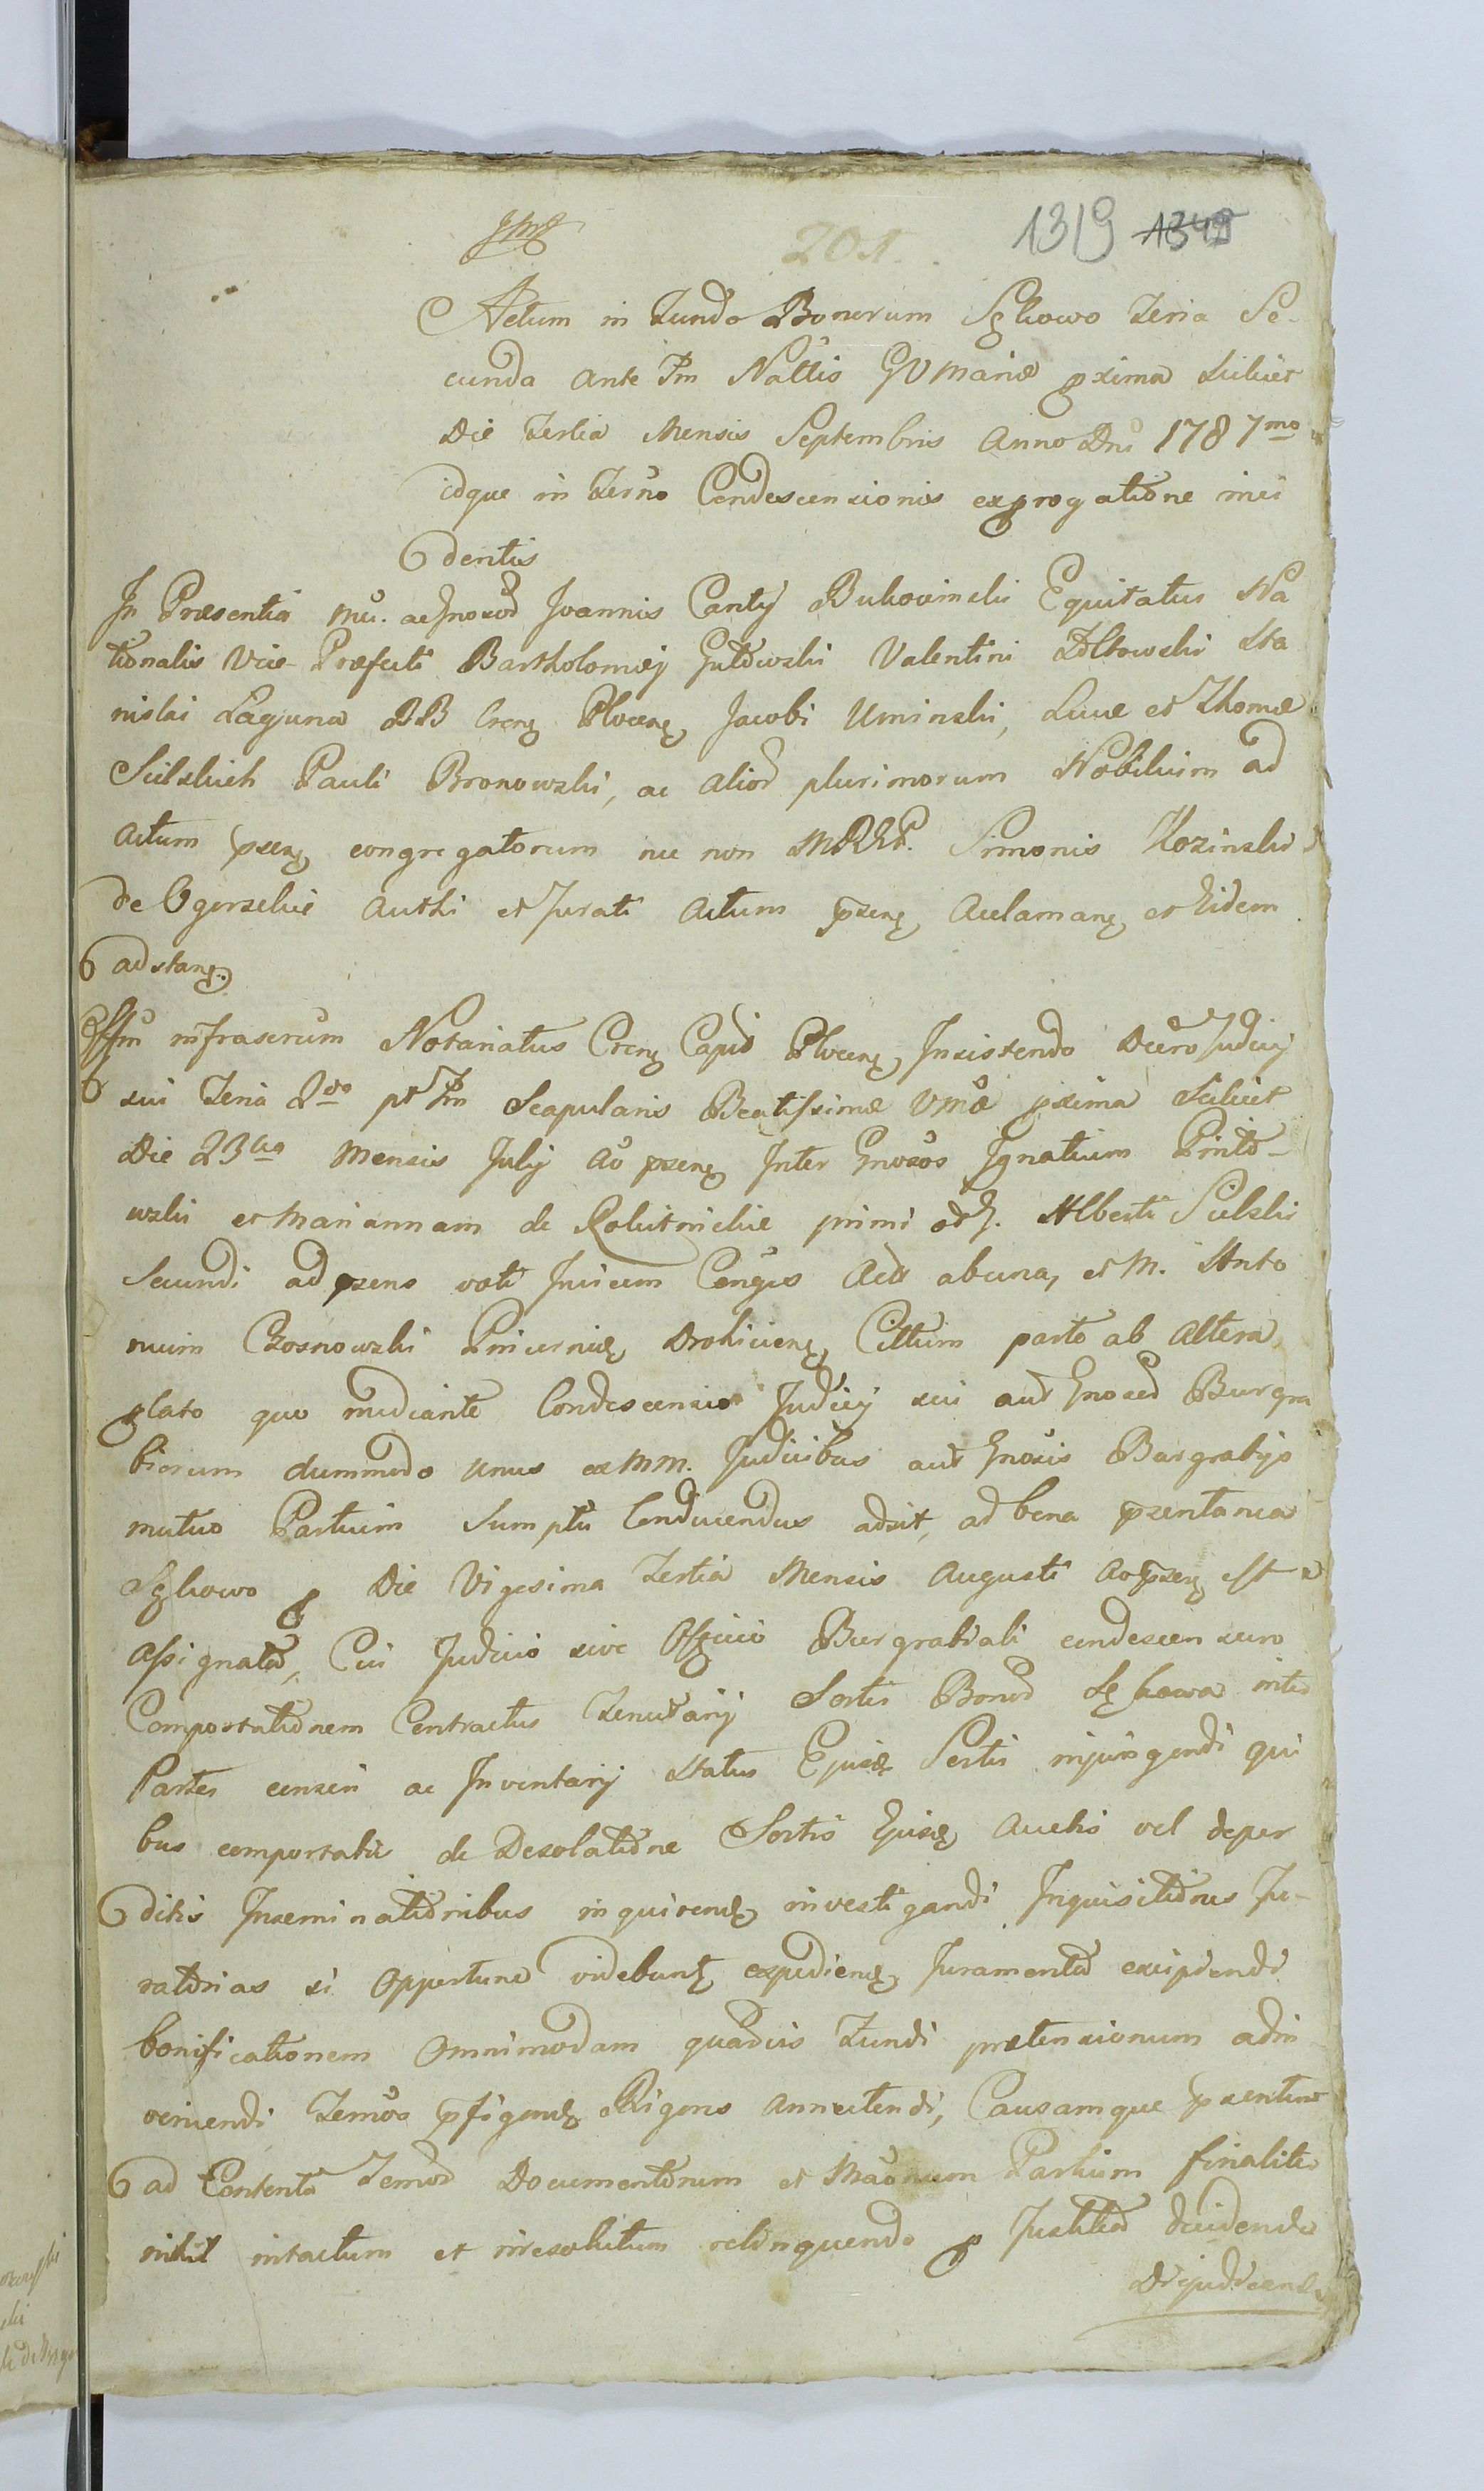 201.
1319 1349
Actum in Fundo Bonorum Sękowo Feria Se-
cunda ante Fm Nattis BVMariæ pxima scilicet
Die Tertia Mensis Septembris Anno Dni 1787mo
idque in Termo Condescensionis ex prorogatione inci
dentis
In Præsentia M. ac Gnosor Joannis Canty Bukowinski Equitatus Na
tionalis Vice-Præfecti Bartholomæj Gutowski Valentini Zółtowski Sta
nislai Laguna BB Crens Plocens Jacobi Uminski, Lucæ et Thomæ
Sulskich Pauli Bronowski, ac alior plurimorum Nobilium ad
actum psens congregatorum nec non MRRP. Simonis Kozinski
de Ogorzelice Authi et Jurati actum psens acclamans et Eidem
adstans.
Offm infrascrum Notariatus Crens Capit Plocens, Insistendo Decro Judicij
sui Feria 2da pt Fm Scapularis Beatissimæ VMæ pxima scilicet
Die 23tia Mensis Julij Ao psens Inter Gnosos Ignatium Pinto-
wski et Mariannam de Rokitnickie primi olt. Alberti Sulski
Secundi ad psens voti Invicem Conges Acts ab una, et M. Anto
nium Czosnowski Pincernæ Drohiciens, Cittum parte ab altera
plato quo mediante Condescensio Judicij sui aut Gnosor Burgra
biorum dummodo unus ex MM. Judicibus aut Gnosis Burgrabijs
mutuo Partium sumptu conducendus adsit, ad bona psentanea
Sękowo p Die Vigesima Tertia Mensis Augusti Ao psens est
assignata, Cui Judicio sive Officio Burgrabiali condescensuro
Comportationem Contractus Tenutarij Sortis Bonor Sękowa inter
Partes censeri ac Inventarij status Ejusd Sortis injungendi qui
bus comportatis de Desolatione Sortis Ejusd auctis vel deper
ditis Inseminationibus inquirend investigandi Inquisitiones Ju-
ratorias si opportune videbunt expediend Juramenta excipiendi
bonificationem omnimodam quavis Fundi prætensionum adin
veniendi Termos pfigend Rigores annectendi, Causamque psentem
ad Contenta Termor Documentorum et Maonum Partium finaliter
nihil intactum et irresolutum relinquendo p Justitia decidenda
Dijudicanda